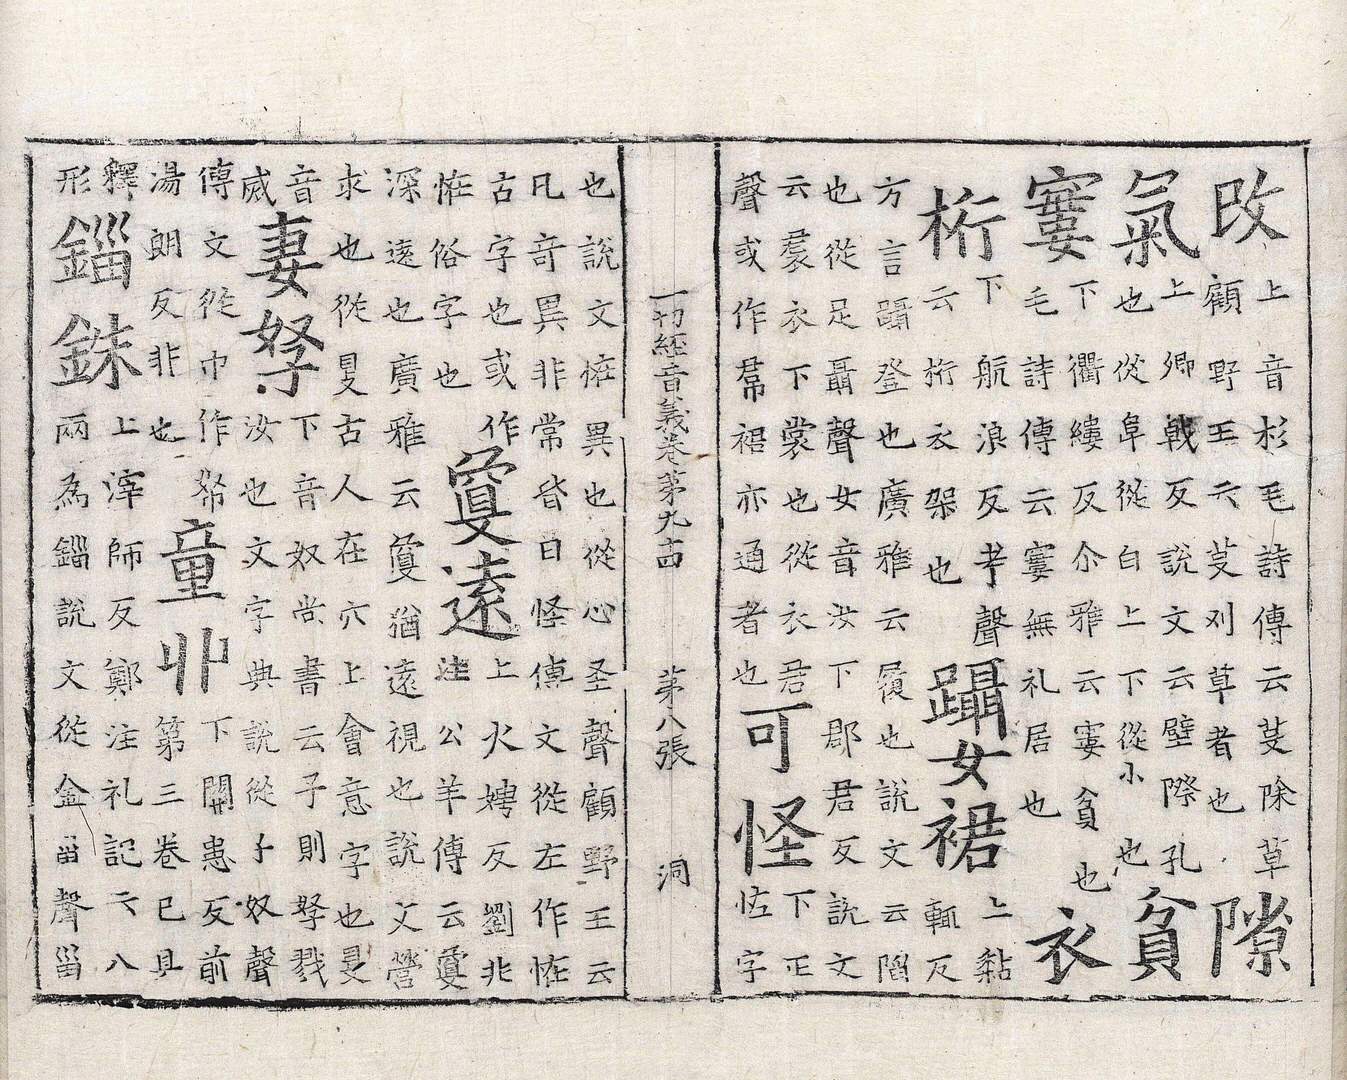 攺上音杉毛詩傳云芟除草顧野王云芟刈草者也隙
氣上卿戟反說文云壁際孔也從阜從白上下從小也貧
窶下衢縷反尒雅云窶貧也毛詩傳云窶無礼居也衣
桁下航浪反考聲云桁衣架也躡女裙上黏輒反
方言躡登也廣雅云履也說文云蹈也從足聶聲女音汝下郡君反說文
云裠衣下裳也從衣君聲或作帬裙亦通者也可怪下正恠字
一切經音義卷第九十四 第八張 洞
也說文恠異也從心圣聲顧野王云凡奇異非常皆曰怪傳文從左作恠
古字也或作恠俗字也敻遠上火娉反劉兆注公羊傳云敻
深遠也廣雅云敻猶遠視也說文營求也從𥄎古人在穴上會意字也𥄎
音威妻孥下音奴尚書云予則孥戮汝也文字典說從子奴聲
傳文從巾作帑湯朗反非也童丱下関患反前第三卷已具
釋形錙銖上滓師反鄭注礼記云八兩為錙說文從金甾聲甾